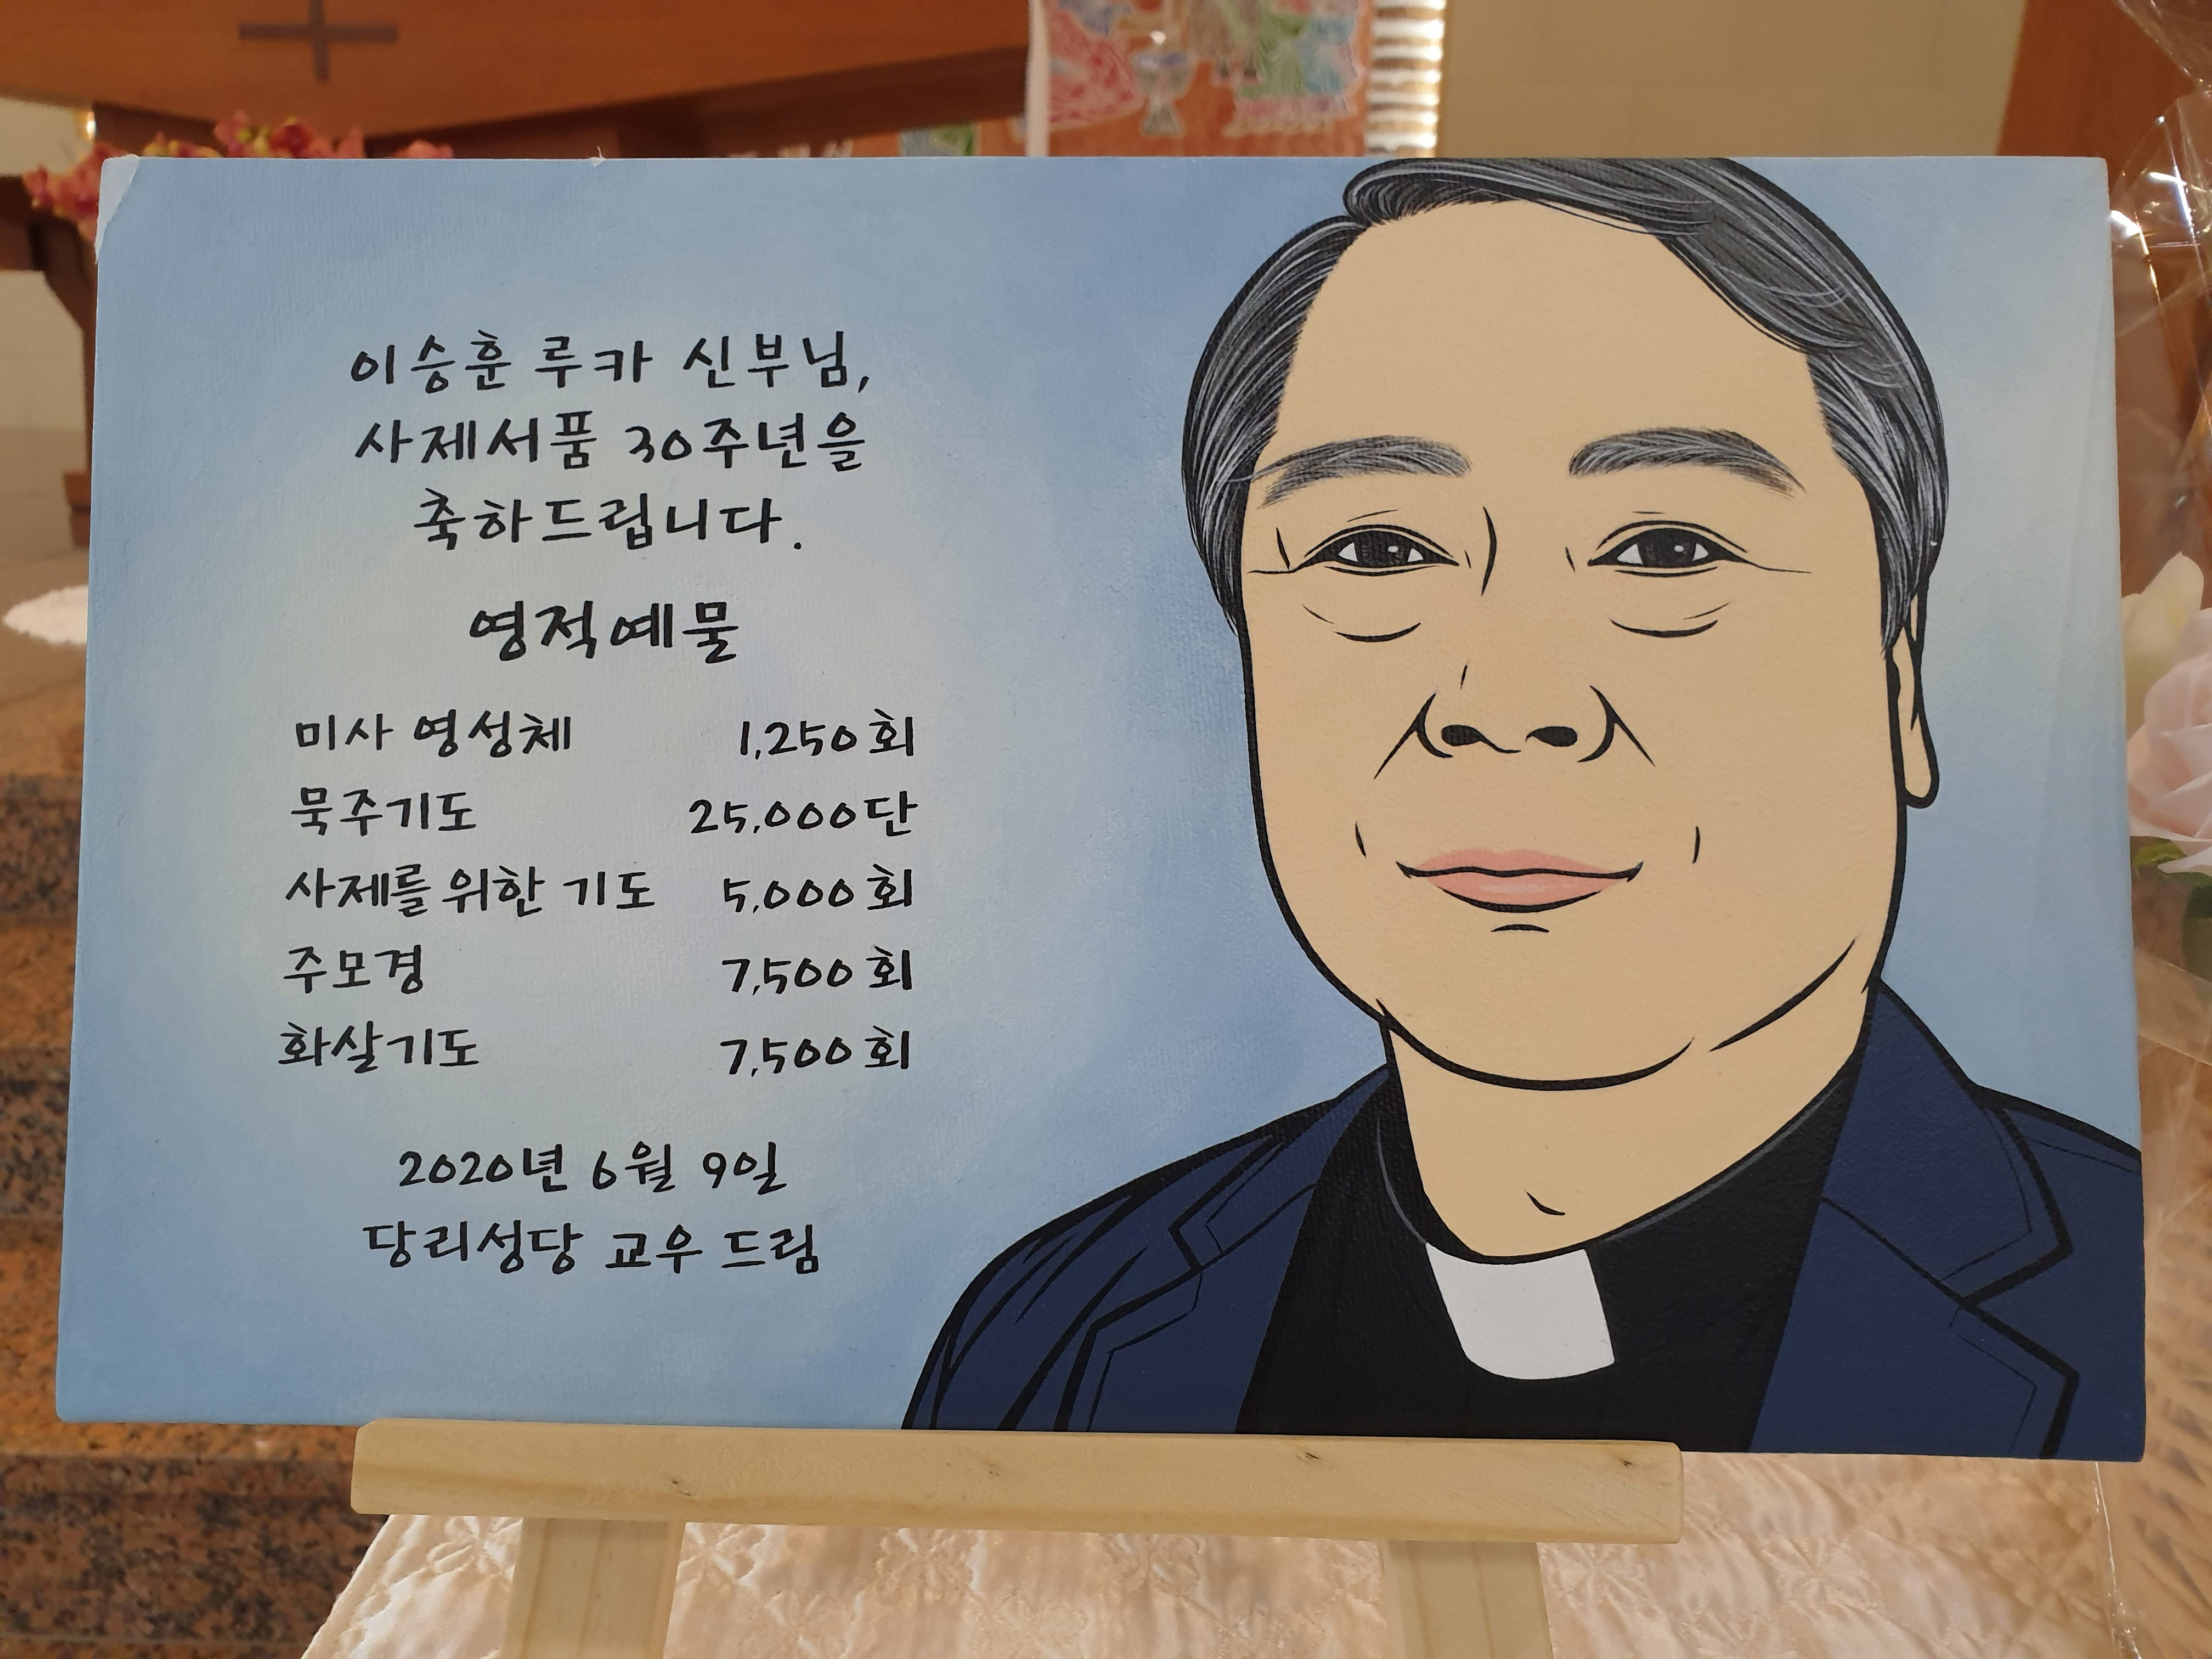 이승훈 루카 신부님,
사제서품 30주년을
축하드립니다.
영적예물
미사 영성체 1,250회
묵주기도 25,000단
사제를 위한 기도 5,000회
주모경 7,500회
화살기도 7,500회
2020년 6월 9일
당리성당 교우 드림